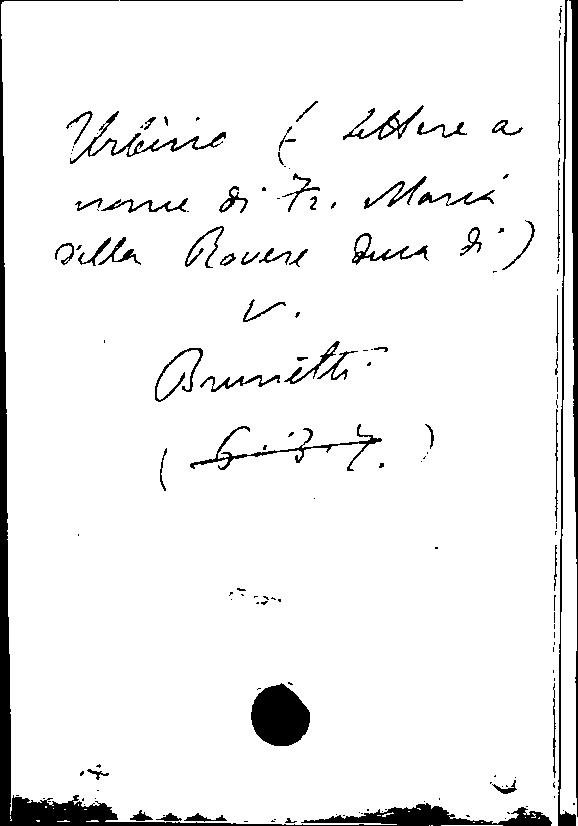 Urbino (Lettere a
nome di Fr. Maria
della Rovere duca di)
v.
Brunetti
(6.3.7.)